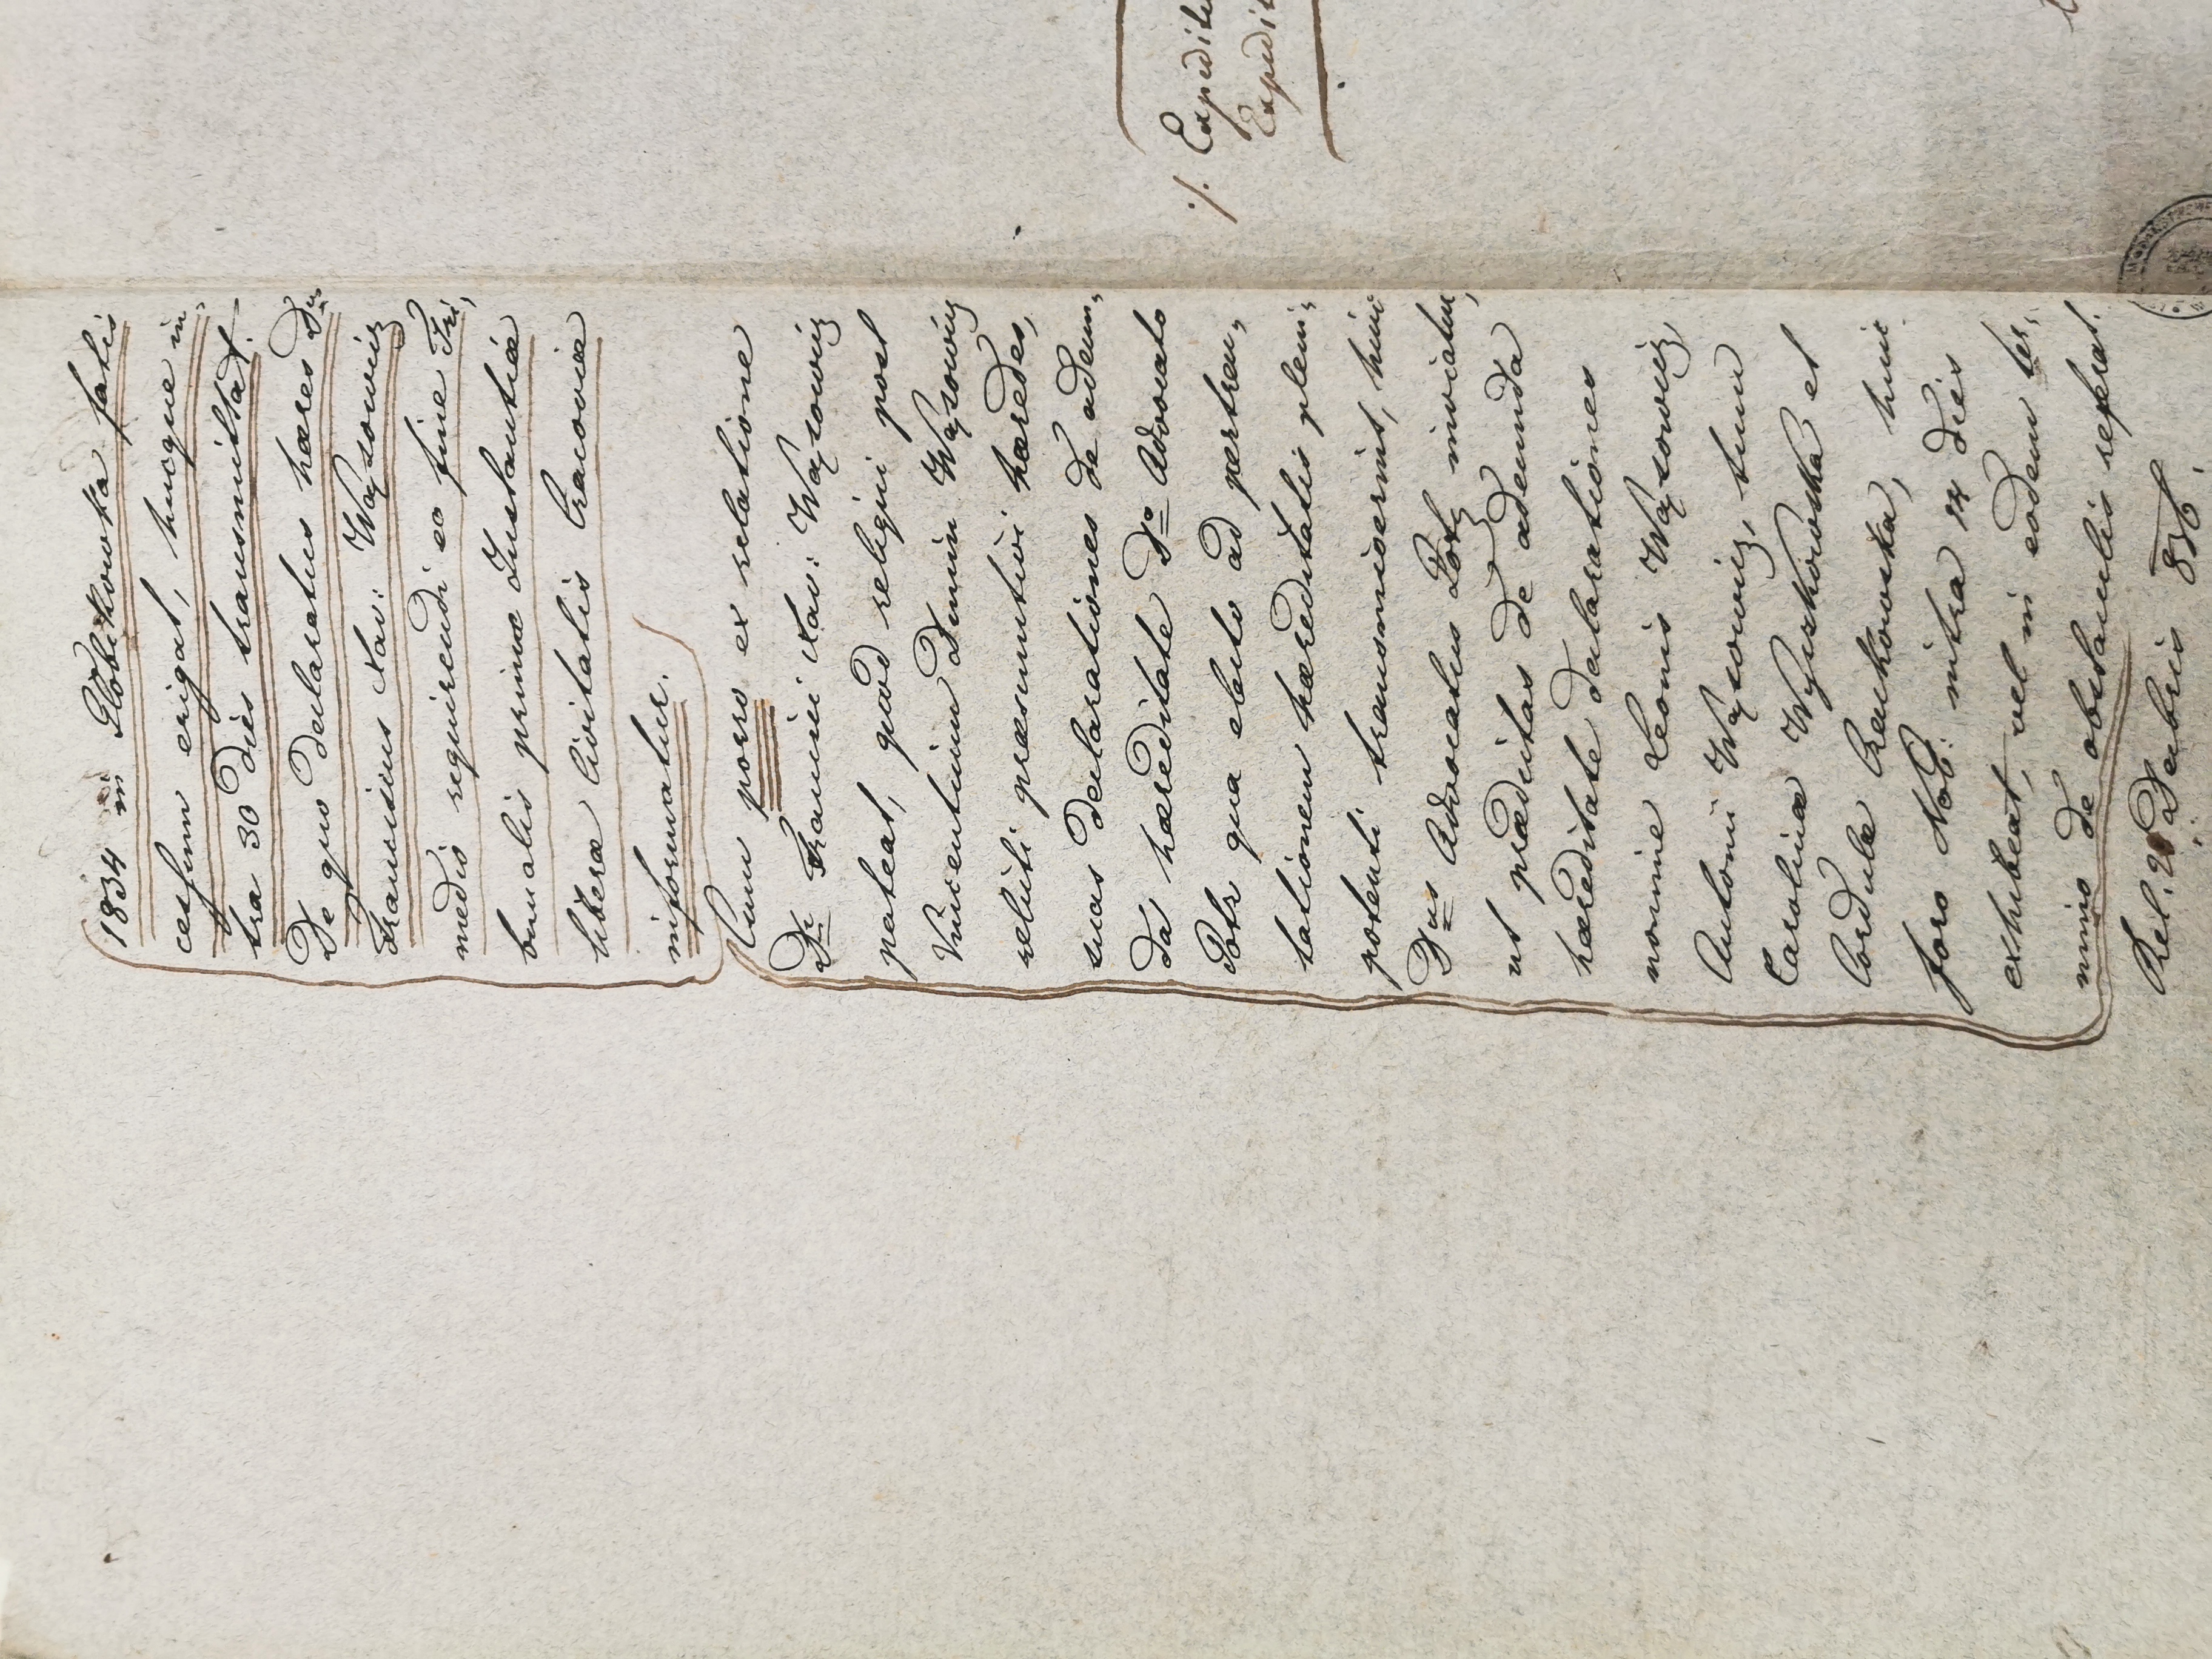 1834 in Globikowka fatis
cessum erigat, hucque in„
tra 30 dies transmittat.
De quo declaratus hæres Dus
Franciscus Xav: Wąsowicz
medio requirendi eo fine Tri„
bunalis primæ Instantiæ
liberæ Civitatis Cracoviæ
informatur.
Cum porro ex relatione
Di Francisci Xav: Wąsowicz
pateat, quod reliqui post
Vincentium Dunin Wąsowicz
relicti præsumtivi hæredes,
suas declarationes de adeun„
da hæreditate Do Advocato
Potz qua elato ad pertrac„
tationem hæreditatis pleni„
potenti transmiserint, huic
Dus Advocatus Potz inviatur,
ut præductas de adeunda
hæreditate declarationes
nomine Leonis Wąsowicz,
Antonii Wąsowicz, tum
Carolinæ Wyszkowska et
Cordulæ Czaykowska, huic
foro Nob: intra 14 dies
exhibeat, vel in eodem ter„
mino de obstaculis referat.
Rel. 2 Xbris 836.
·/. Expedit
Expedit